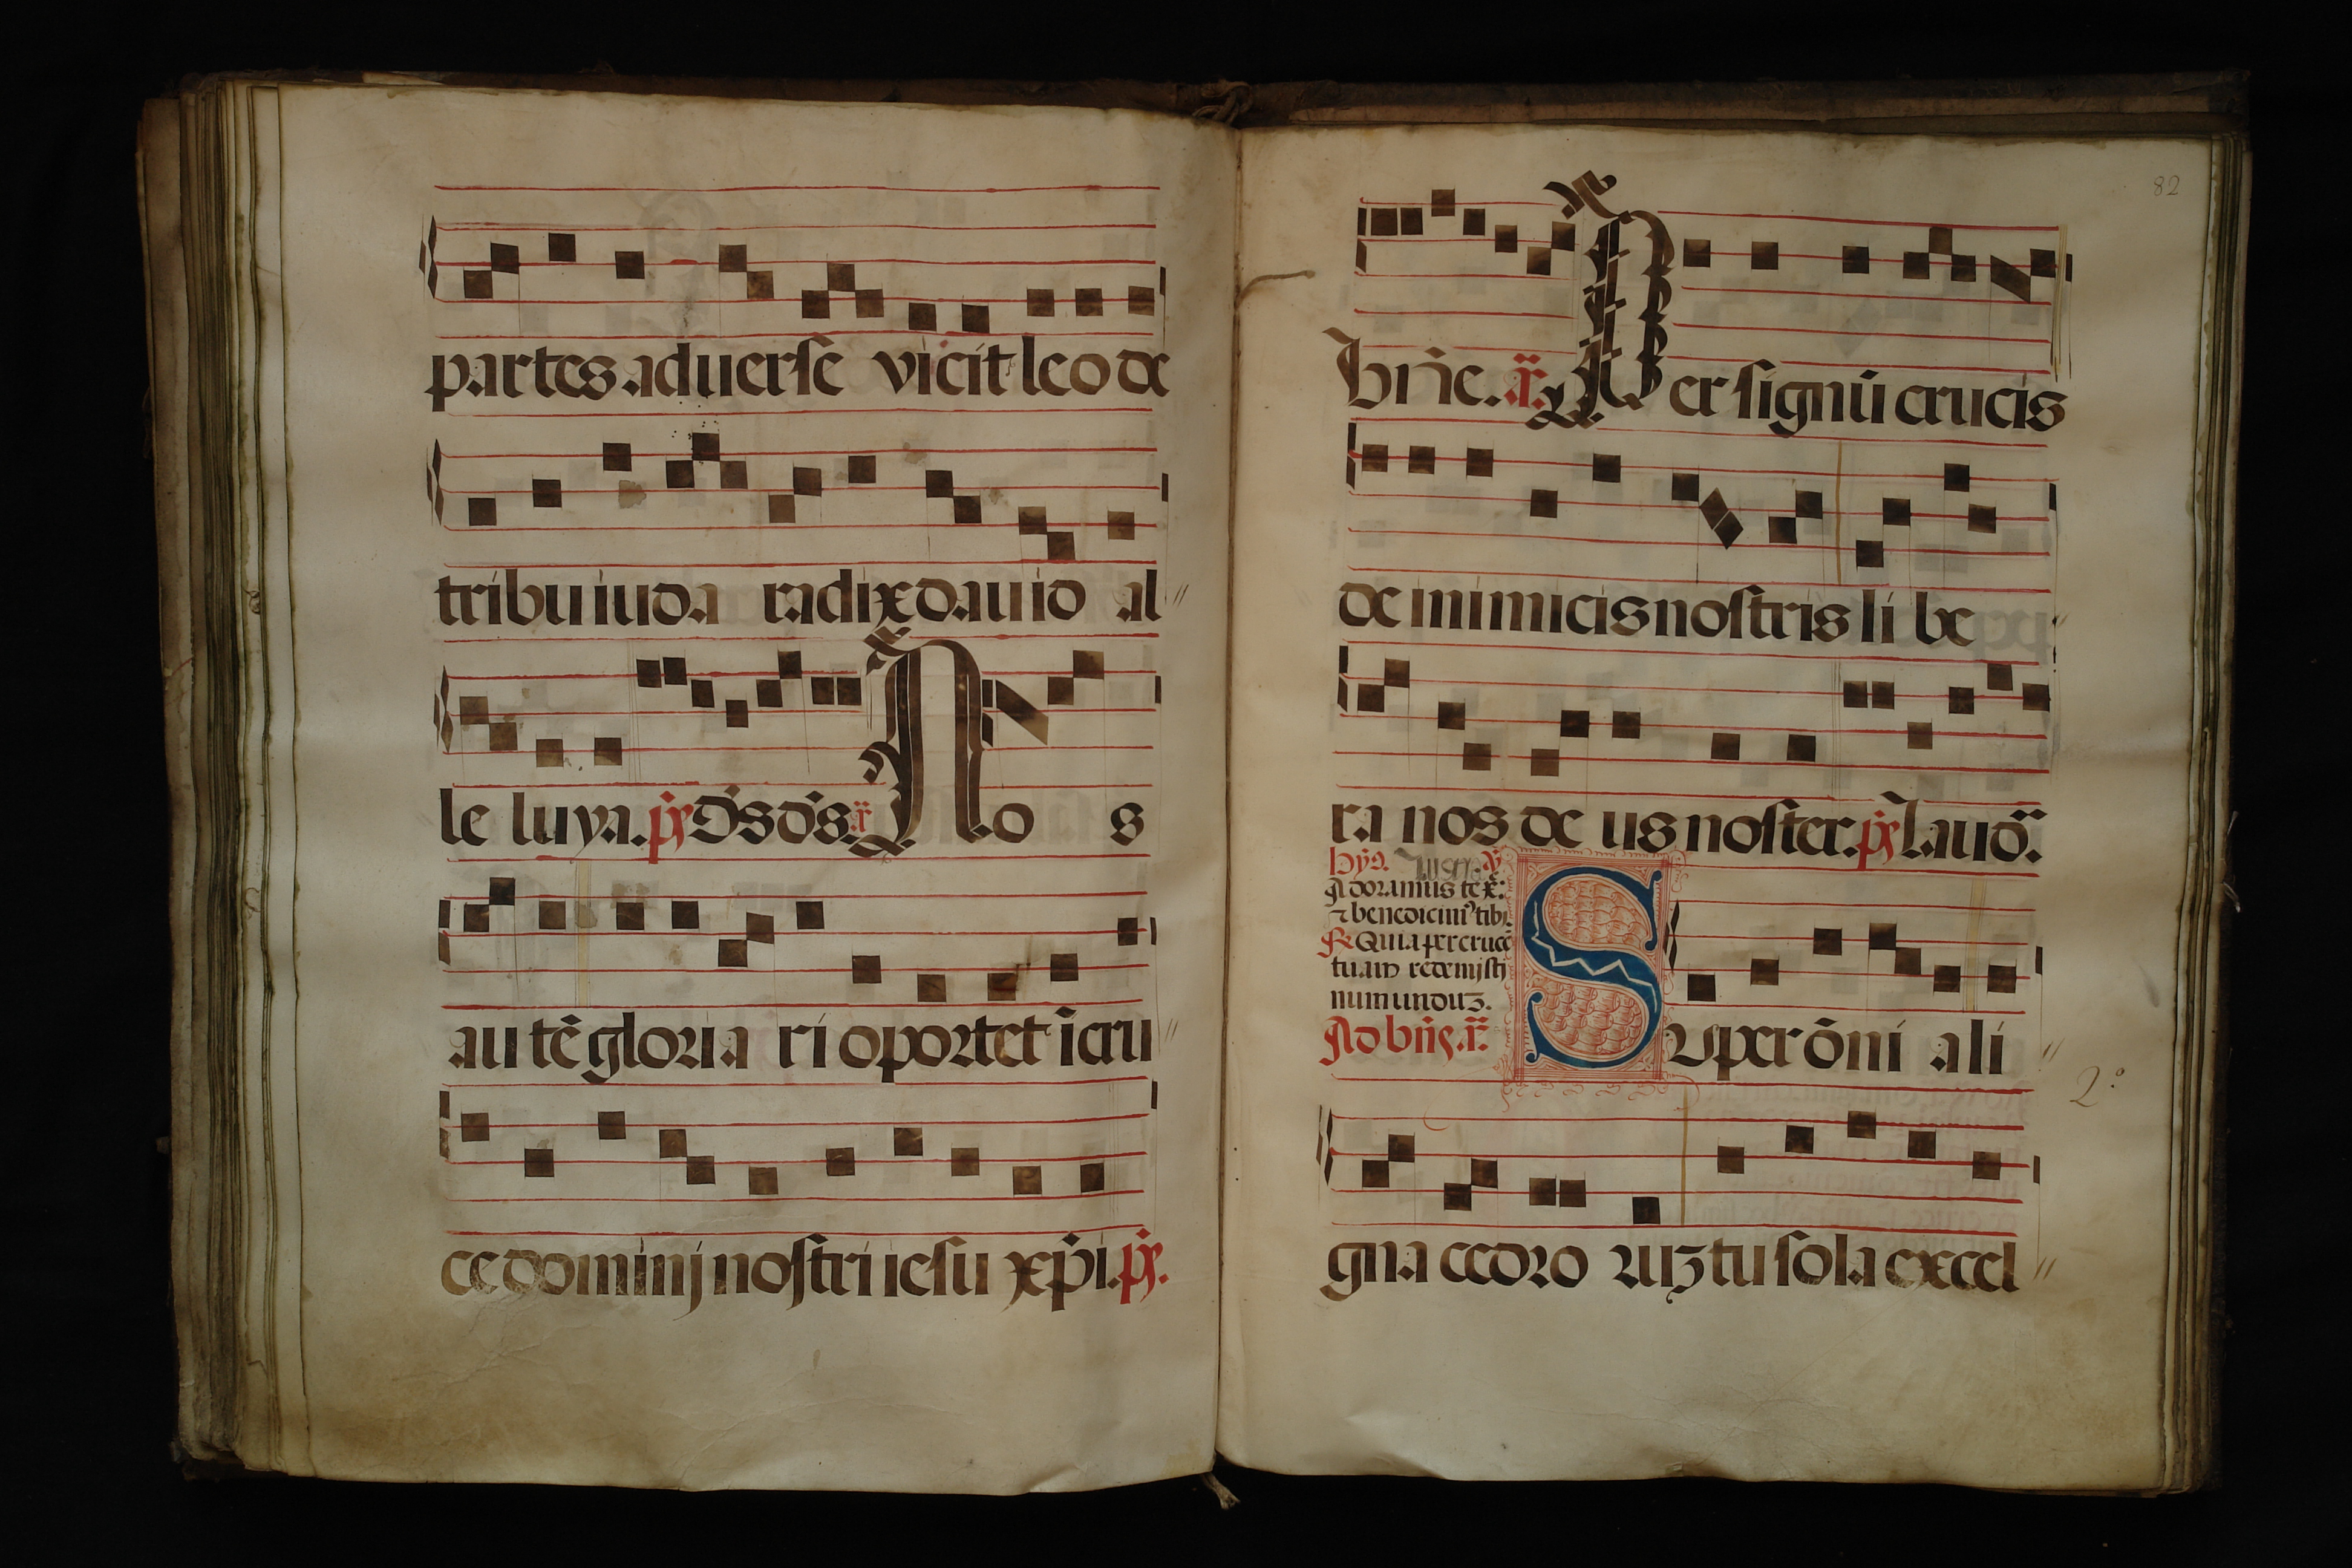 partes aduerse vicit leo de
tribu iuda radix dauid al
le luya. ps. Ds ds. a. No s
autē gloria ri oportet ī cru
ce dominj nostri iesu xpi. ps.
82
Bn̄e. a. Per signū crucis
de inimicis nostris li be
ra nos de us noster. ps. Laud.
hy9. v
Adoramus te xe:
⁊ benedicim9 tibi.
R Quia per crucē
tuam redemisti
munduʒ.
Ad bn̄s. a. Super ōni ali
2º
gna cedro ruʒ tu sola excel